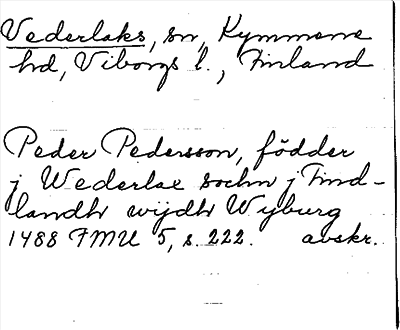 Vederlaks, sn, Kymmene
hd, Viborgs l., Finland
Peder Pedersson, födder
j Wederlax sochn j Find-
landh wijdh Wyburg
1488 FMU 5, s. 222. avskr.